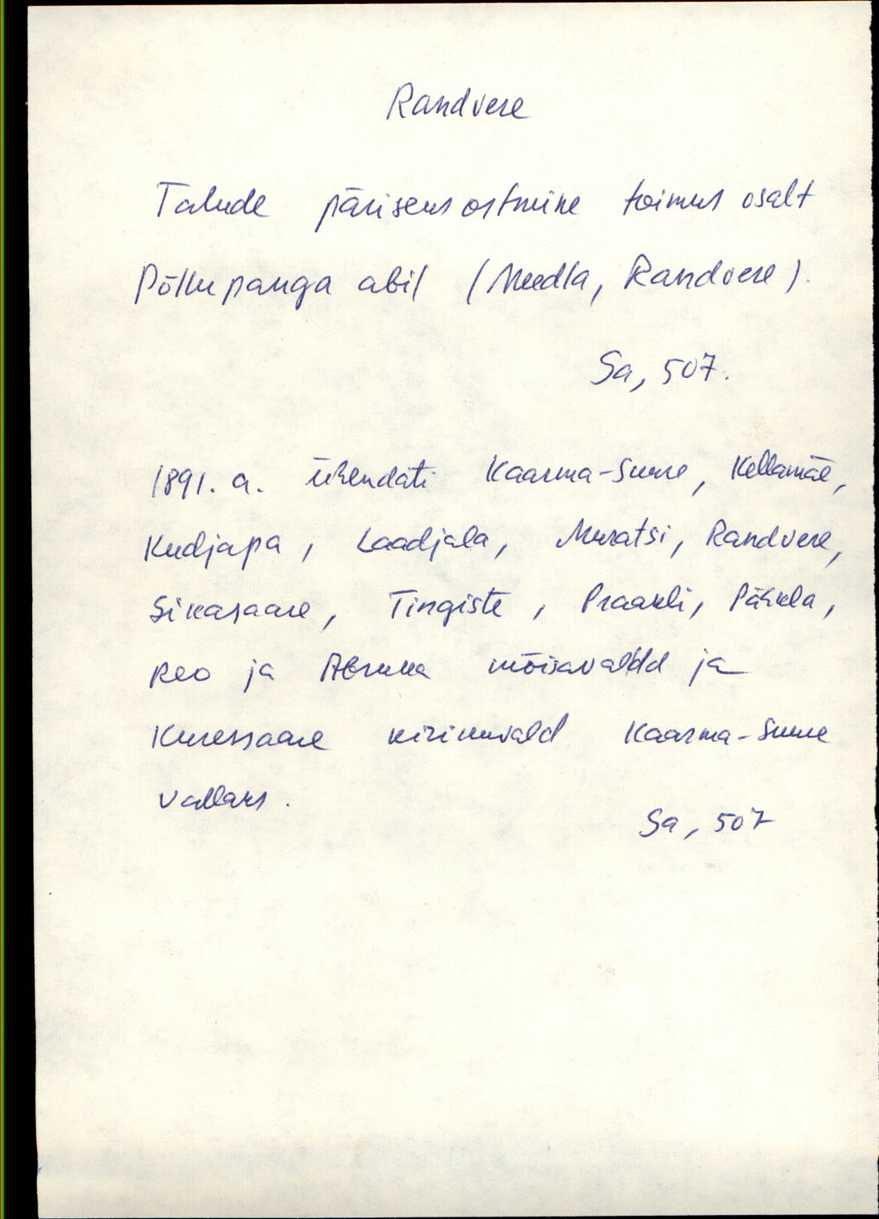 Randvere
Talude päriseksostmine toimus osalt
Põllupanga abil (Meedla, Randvere).
Sa, 507.
1891. a. ühendati Kaarma-Suure, Kellamäe,
Kudjapa, Laadjala, Muratsi, Randvere,
Sikasaare, Tingiste, Praakli, Pähkla,
Reo ja Abruka mõisavallad ja
Kuressaare kirikuvald Kaarma-Suure
vallaks.
Sa, 507